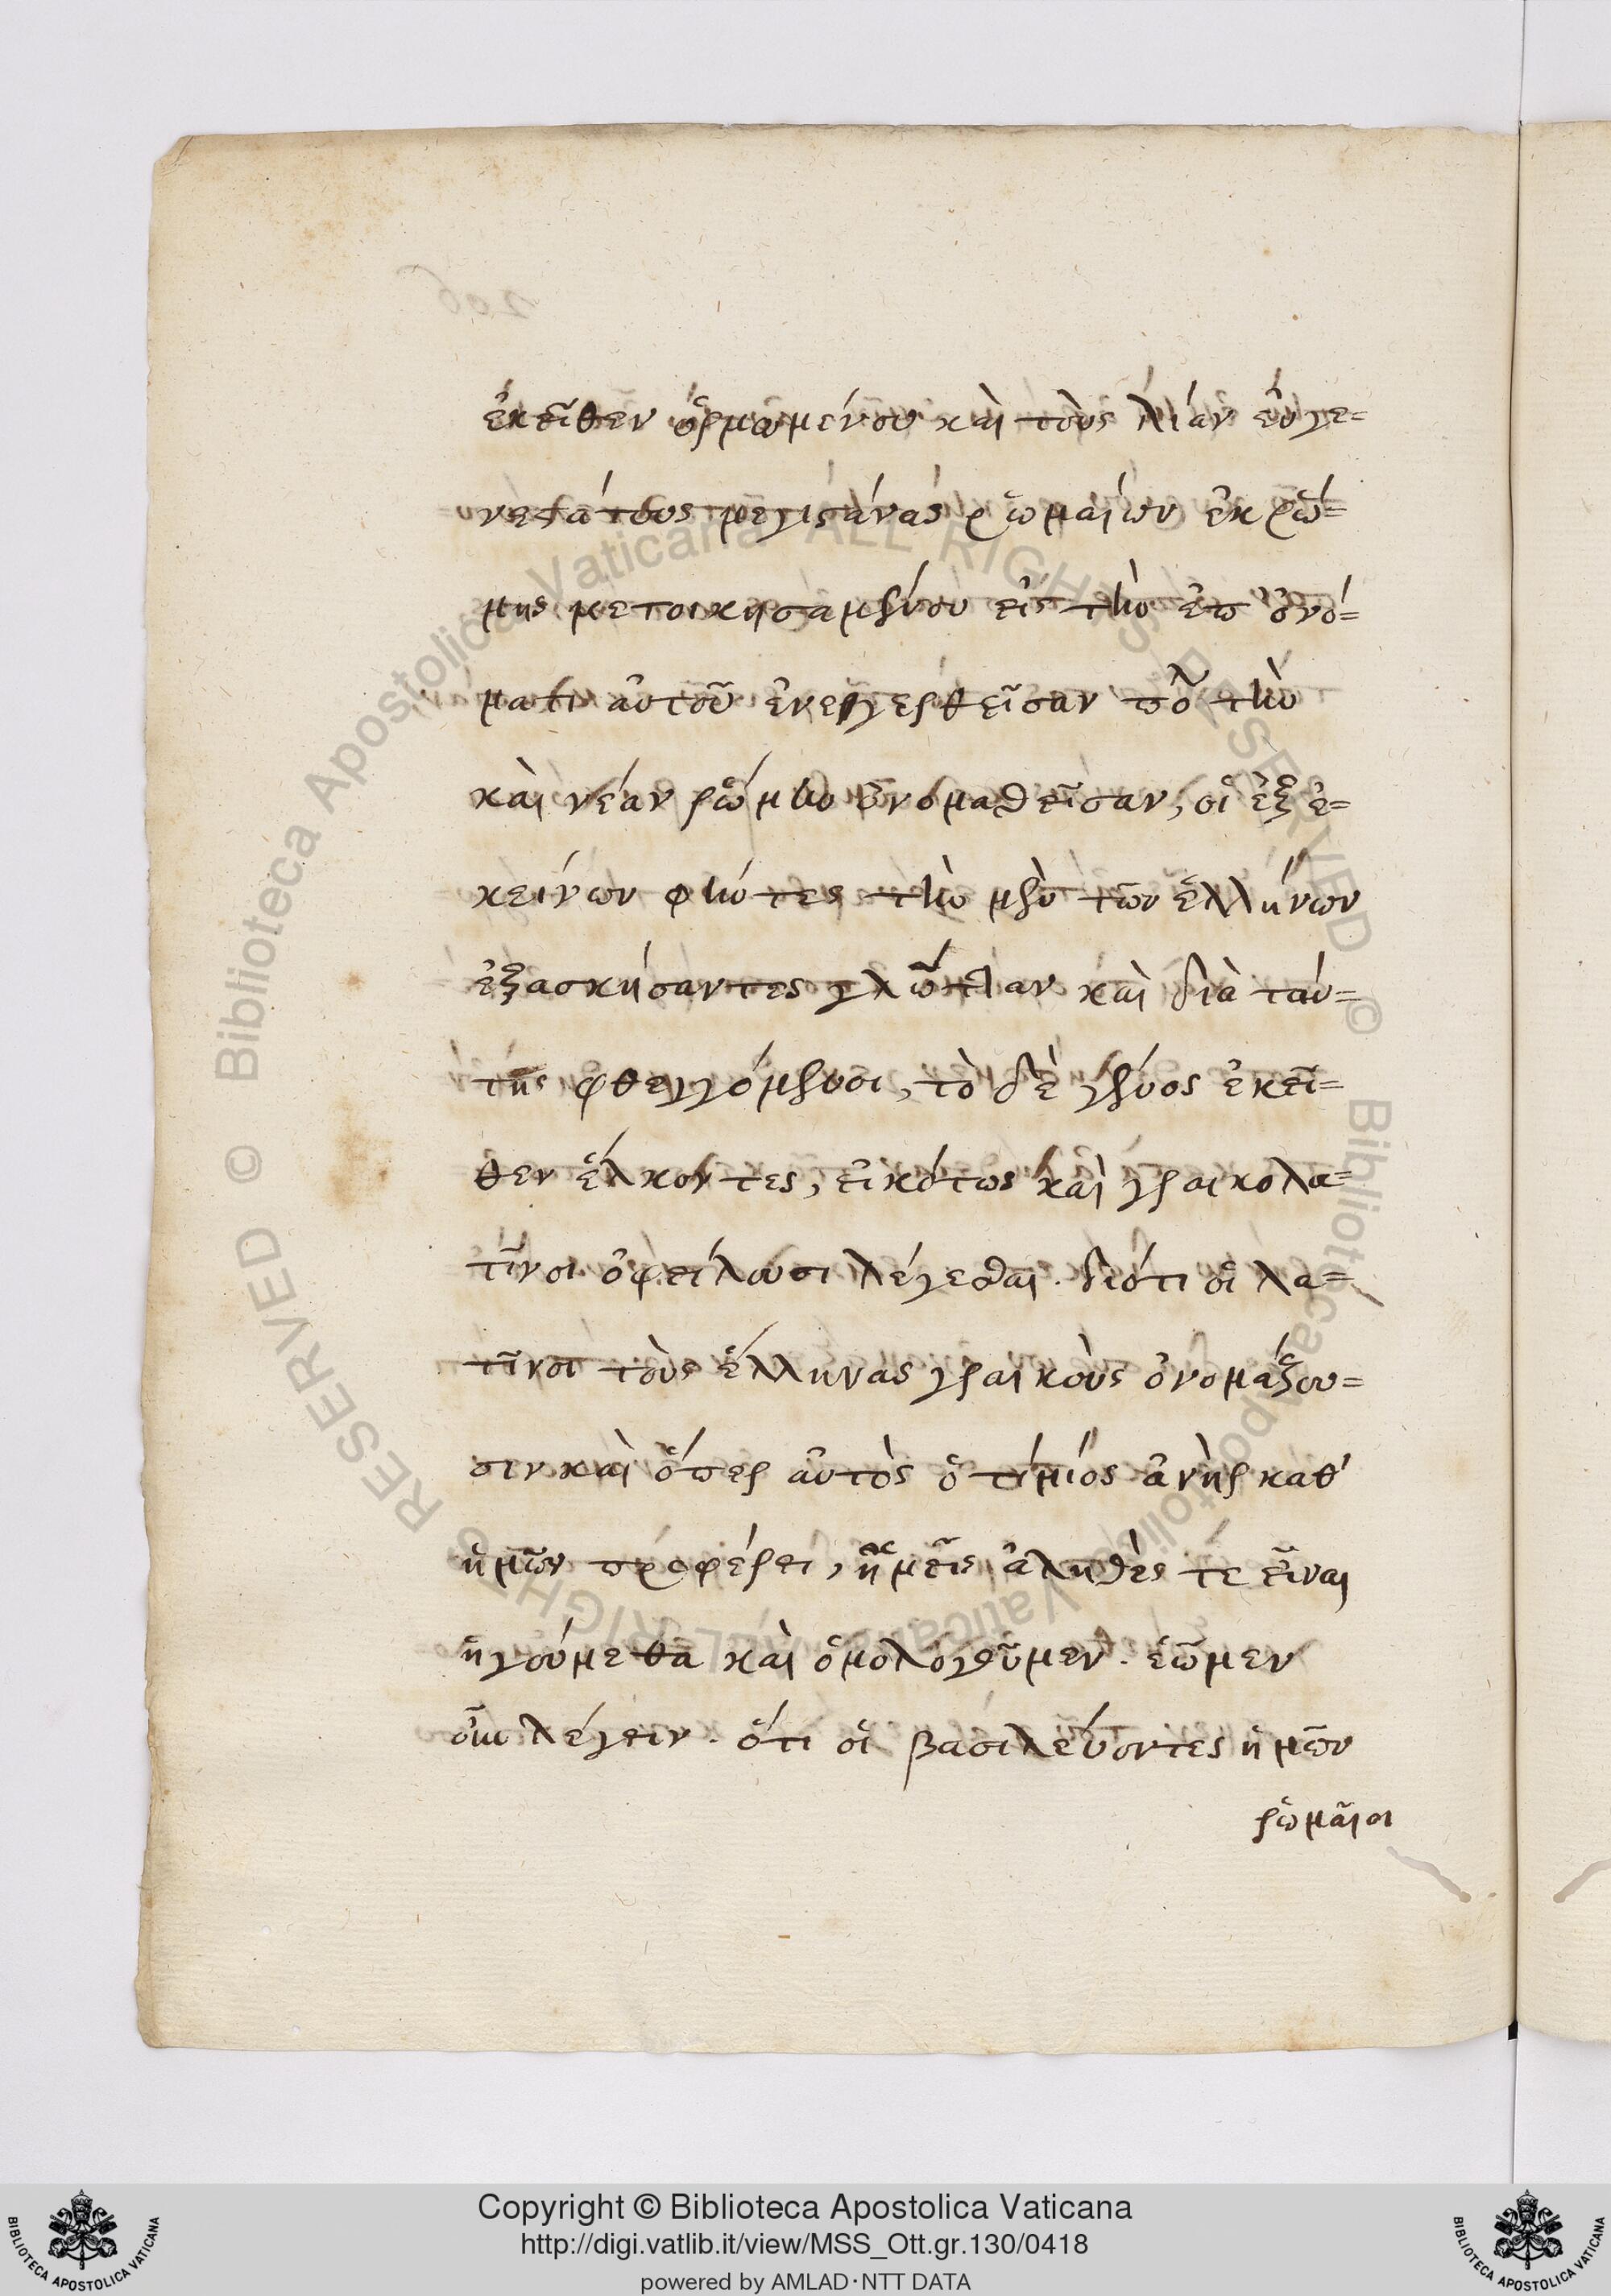 ἐκεῖθεν ὁρμωμένου καὶ τοὺς λίαν εὐγε=
νεστάτους μεγιστάνας ῥωμαίων ἐκ ῥώ=
μης μετοικησαμένου εἰς τὴν ἐπ' ὀνό=
ματι αὐτοῦ ἐνεγερθεῖσαν πόλ τὴν
καὶ νέαν ῥώμην ὀνομασθεῖσαν, οἱ ἐξ ἐ=
κείνων φύντες τὴν μὲν τῶν ἑλλήνων
ἐξασκήσαντες γλῶτταν καὶ διὰ ταύ=
της φθεγγόμενοι, τὸ δὲ γένος ἐκεῖ=
θεν ἕλκοντες, εἰκότως καὶ γραικολα=
τῖνοι ὀφείλουσι λέγεσθαι. διότι οἱ λα=
τῖνοι τοὺς ἕλληνας γραικοὺς ὀνομάζου=
σιν καὶ ὅπερ αὐτὸς ὁ τίμιος ἀνὴρ καθ'
ἡμῶν προφέρει, ἡμεῖς ἀληθές τε εἶναι
ἡγούμεθα καὶ ὁμολογοῦμεν. ἐῶμεν
οὖν λέγειν. ὅτι οἱ βασιλεύοντες ἡμῶν
ῥωμαῖοι
Copyright © Biblioteca Apostolica Vaticana
http://digi.vatlib.it/view/MSS_Ott.gr.130/0418
powered by AMLAD·NTT DATA
BIBLIOTECA APOSTOLICA VATICANA
BIBLIOTECA APOSTOLICA VATICANA
© Biblioteca Apostolica Vaticana ALL RIGHTS RESERVED © Biblioteca Apostolica Vaticana ALL RIGHTS RESERVED
206